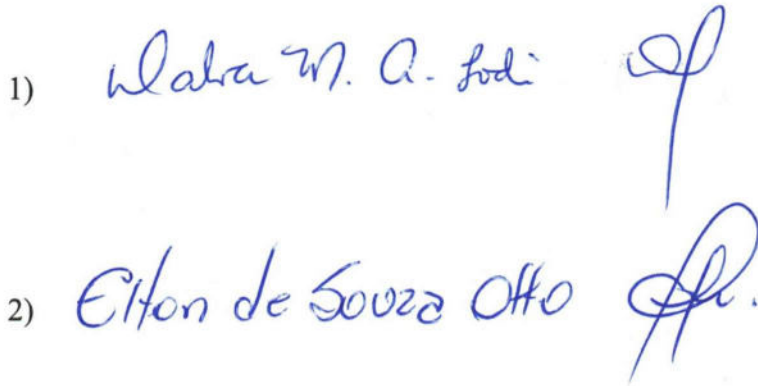 1) Dalva M. A. Lodi
2) Elton de Souza Otto